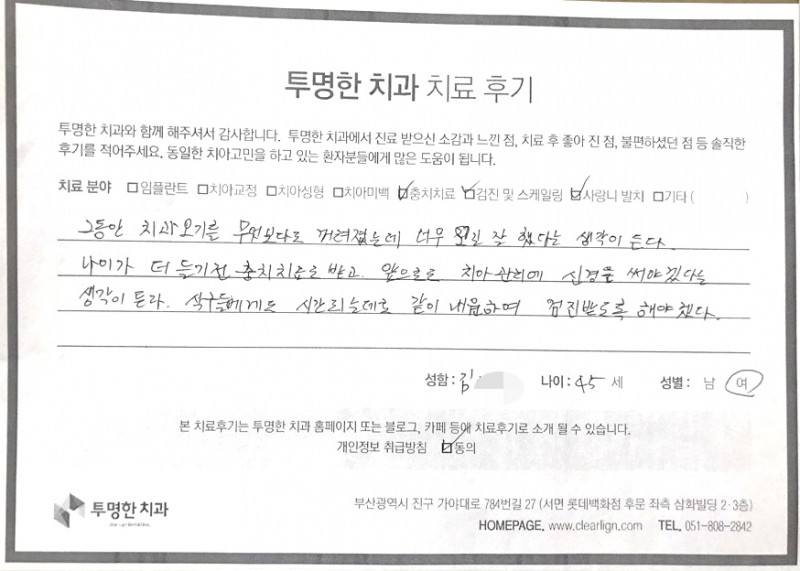 투명한 치과 치료 후기
투명한 치과와 함께 해주셔서 감사합니다. 투명한 치과에서 진료 받으신 소감과 느낀 점, 치료 후 좋아 진 점, 불편하셨던 점 등 솔직한
후기를 적어주세요. 동일한 치아고민을 하고 있는 환자분들에게 많은 도움이 됩니다.
치료 분야 □임플란트 □치아교정 □치아성형 □치아미백 ☑충치치료 ☑검진 및 스케일링 ☑사랑니 발치 □기타 ( )
그동안 치과오기를 무엇보다도 꺼려졌는데 너무 잘 했다는 생각이 든다.
나이가 더 들기전 충치치료도 받고. 앞으로도 치아관리에 신경을 써야겠다는
생각이 든다. 식구들에게도 시간되는데로 같이 내원하여 검진받도록 해야겠다.
성함 : 김 나이 : 45 세 성별 : 남 여
본 치료후기는 투명한 치과 홈페이지 또는 블로그, 카페 등에 치료후기로 소개 될 수 있습니다.
개인정보 취급방침 ☑동의
투명한 치과
부산광역시 진구 가야대로 784번길 27 (서면 롯데백화점 후문 좌측 삼화빌딩 2·3층)
HOMEPAGE. www.clearlign.com TEL. 051-808-2842